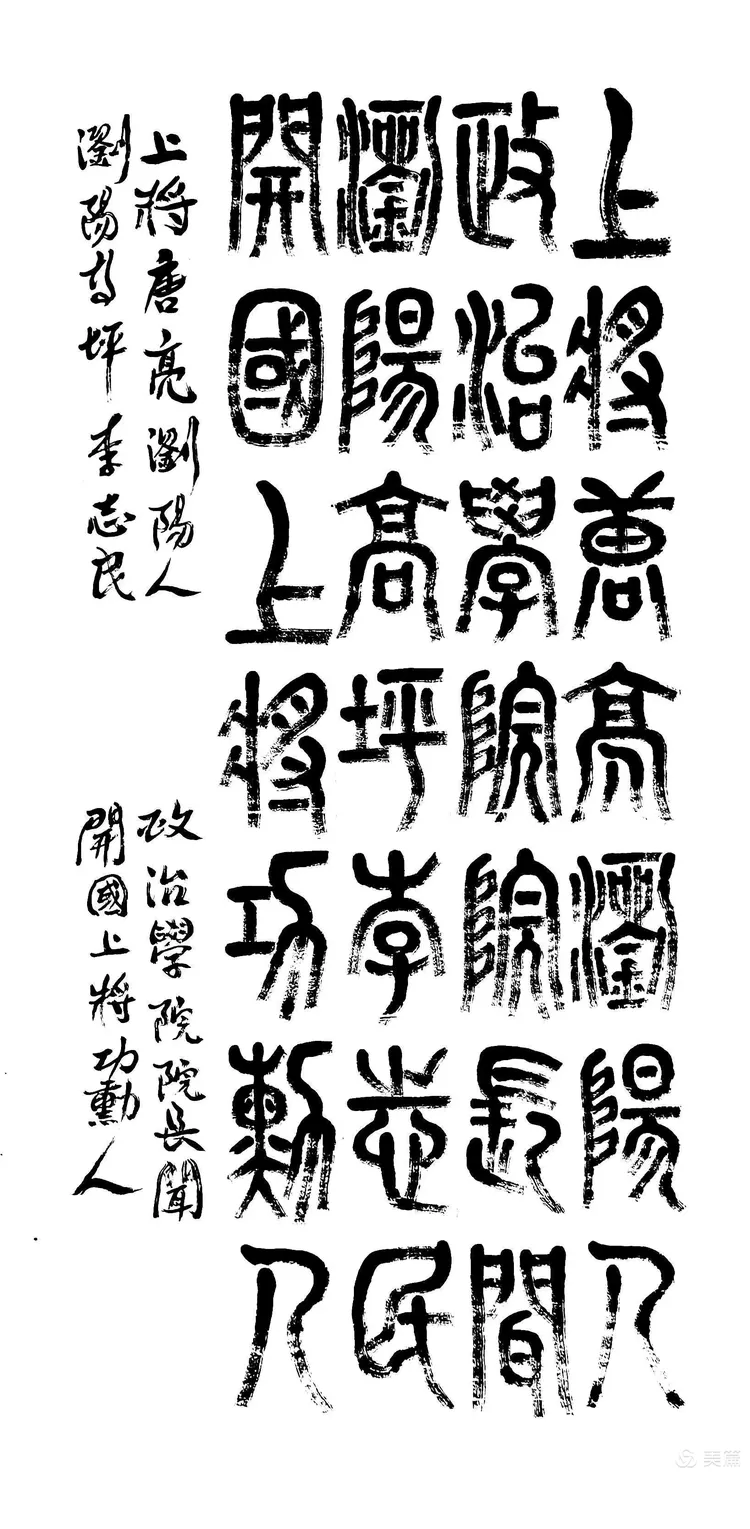 上將唐亮瀏陽人
政治學院院長聞
瀏陽高坪李志民
開國上將功勳人
上將唐亮瀏陽人 政治學院院長聞
瀏陽高坪李志民 開國上將功勳人
美篇